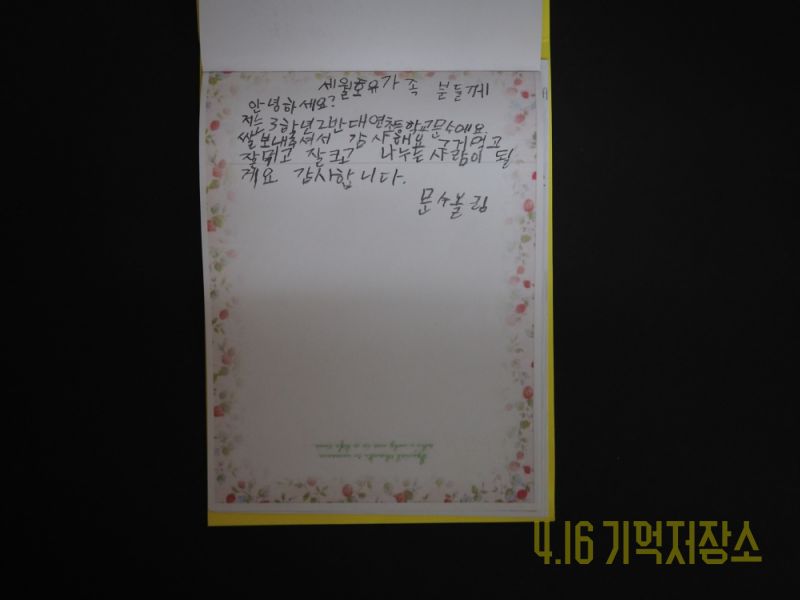 세월호유가족 분들께
안녕하세요?
저는 3학년 2반 대연초등학교 문수예요.
쌀 보내주셔서 감사해요 그거 먹고
잘 되고 잘 크고 나누는 사람이 될
게요 감사합니다.
문수 올림
4.16 기억저장소